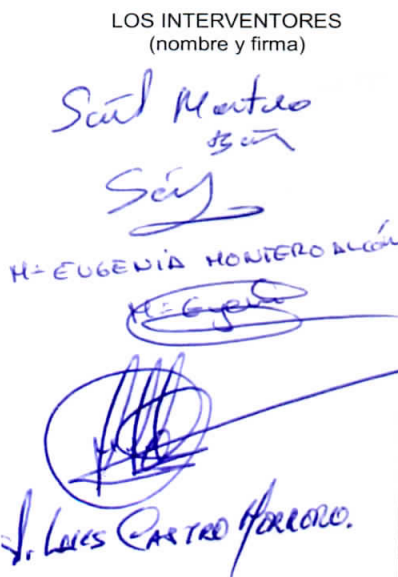 LOS INTERVENTORES
(nombre y firma)
Saúl
Saúl
Mª EUGENIA MONTERO ALCÓN
Mª Eugenia
J. LUIS CASTRO MORRORO.